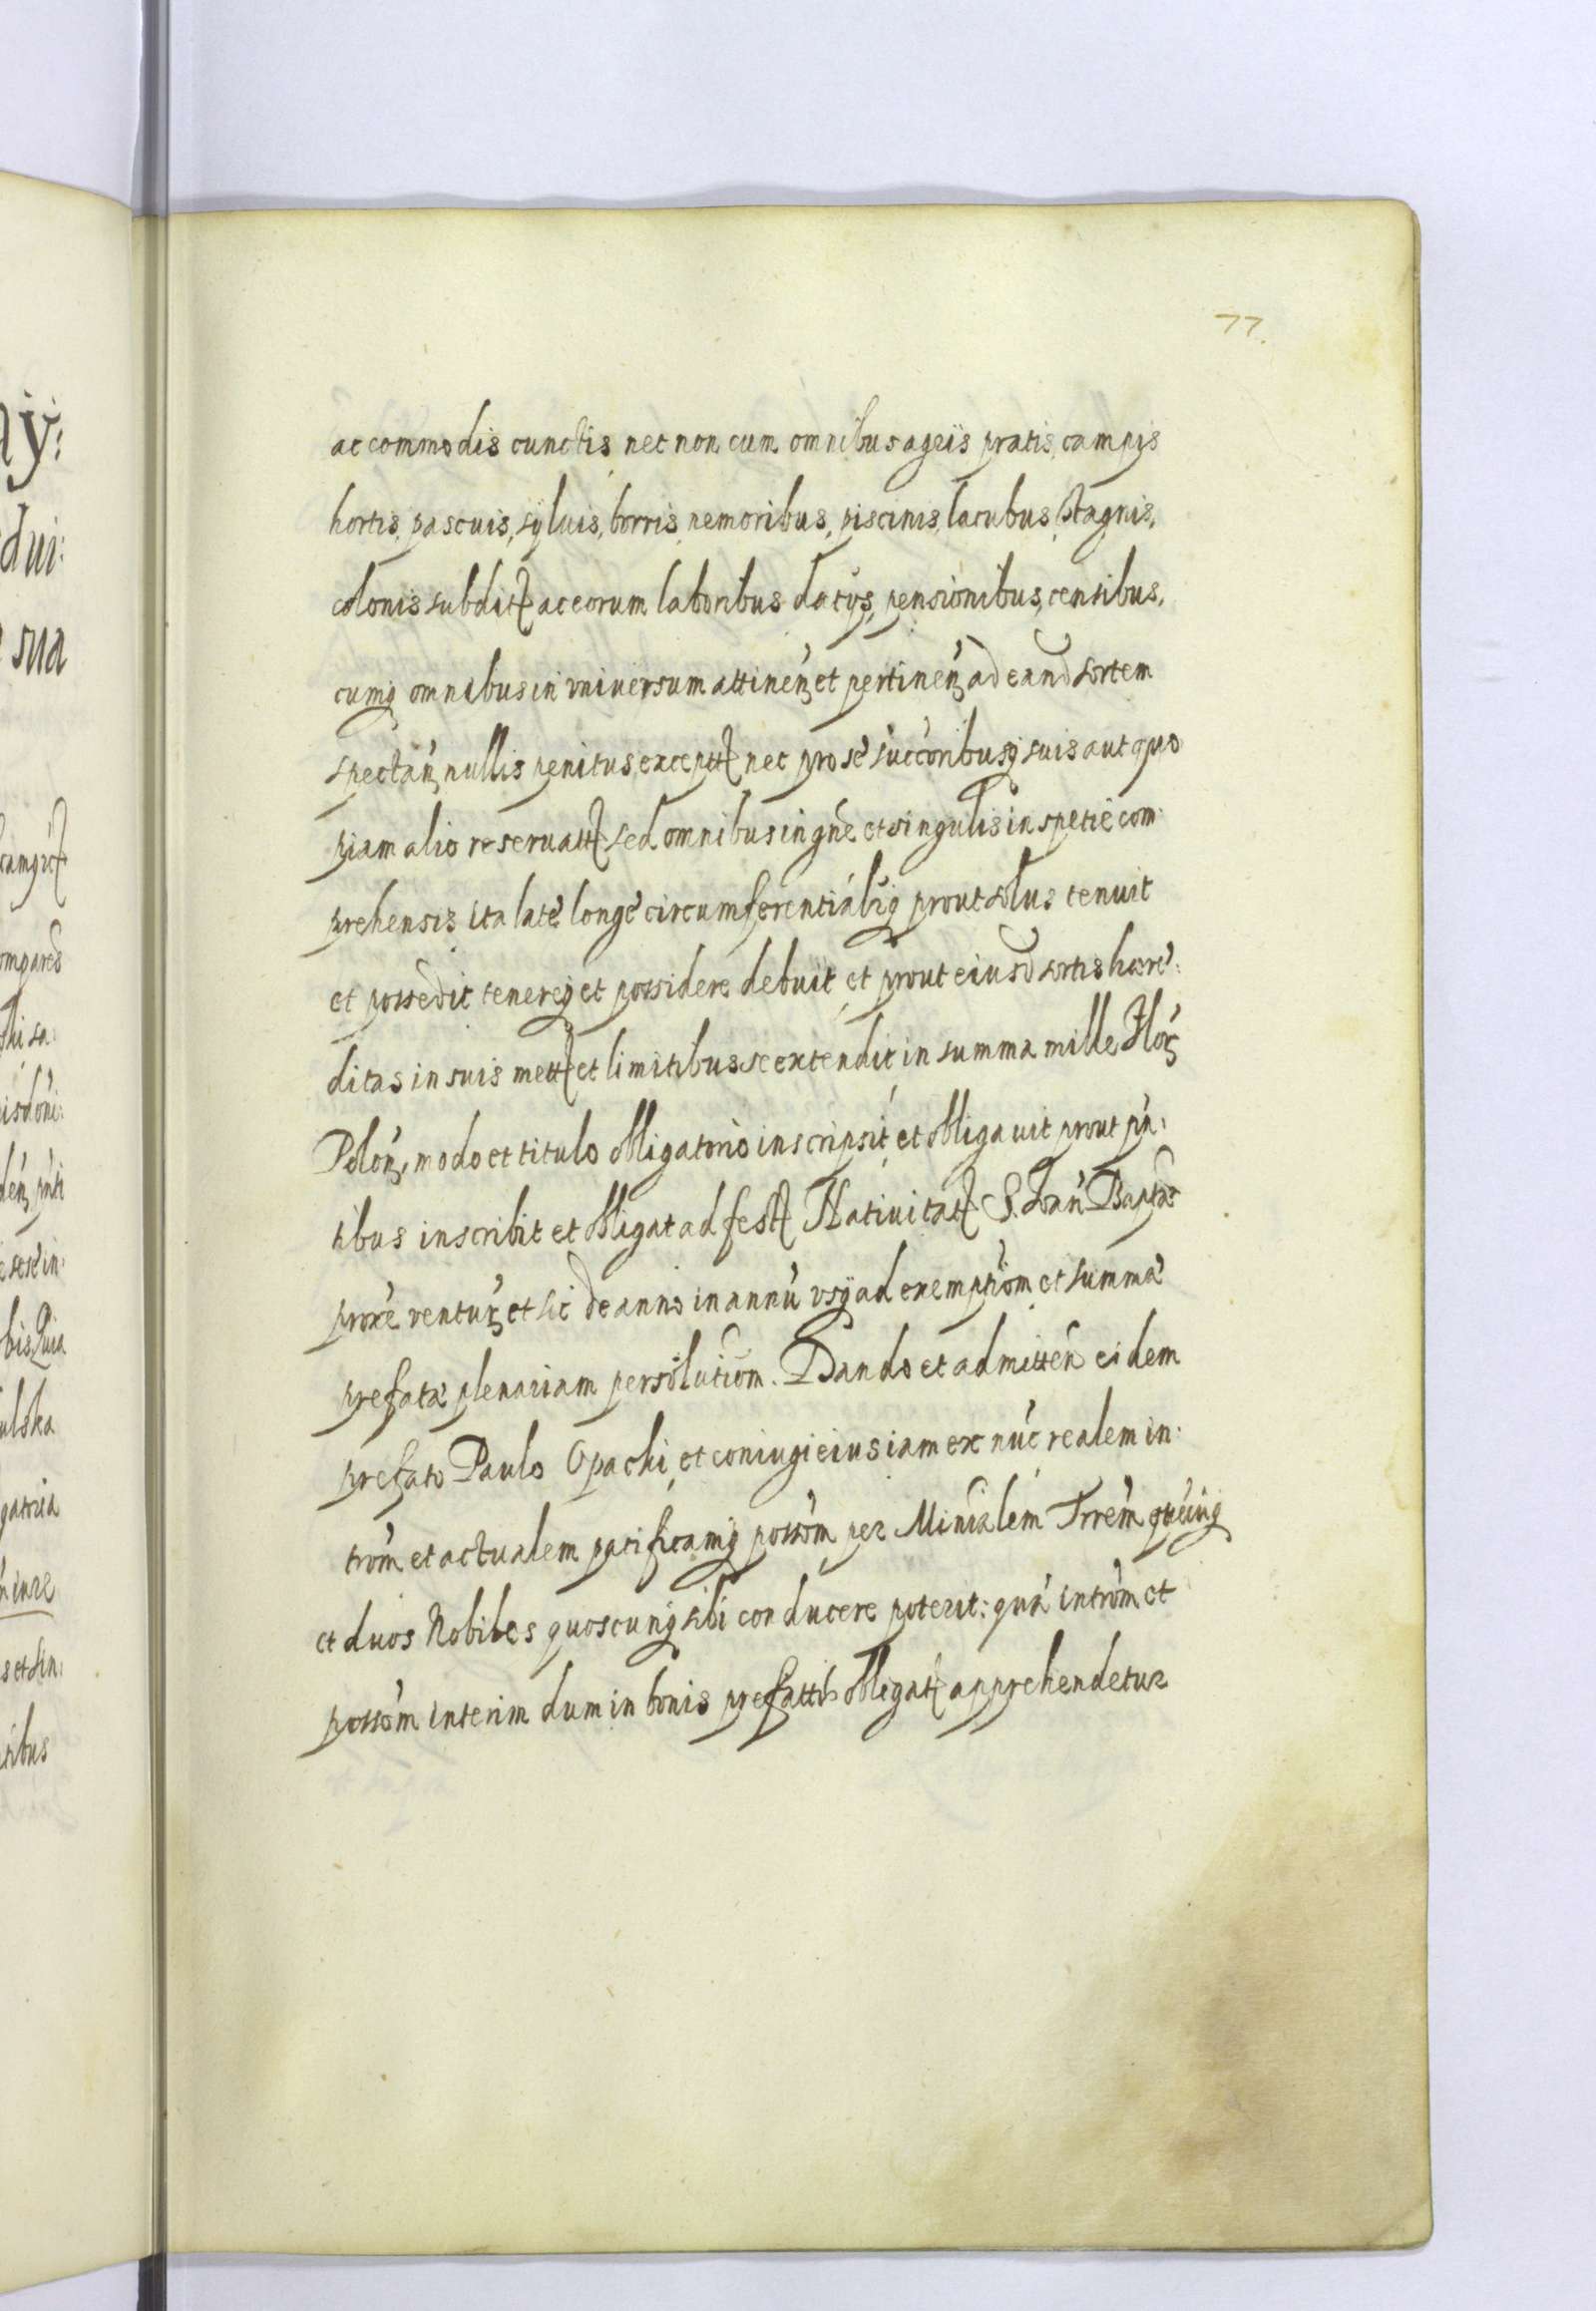 77.
ac commodis cunctis nec non cum omnibus agris pratis, campis
hortis, pascuis, syluis, borris, nemoribus, piscinis, lacubus, stagnis,
colonis subdit ac eorum laboribus dacijs, pensionibus, censibus,
cumq omnibus in vniuersum attinen et pertinen ad eand sortem
spectan nullis penitus except nec pro se succoribusq suis aut quo
piam alio reseruatt sed omnibus in gne et singulis in spetie com:
prehensis ita late longe circumferentialiq prout solus tenuit
et possedit tenereq et possidere debuit et prout eiusd sortis hære:
ditas in suis mett et limitibus se extendit in summa mille Flor
Polon, modo et titulo obligatorio inscripsit et obligauit prout pn:
tibus inscribit et obligat ad fest Natiuitatt S. Joan Baptæ
proxe ventur et sic de anno in annu vsq ad exemptiom et summæ
prefatæ plenariam persolutiom. Dando et admitten eidem
prefato Paulo Opachi et coniugi eius iam ex nuc realem in:
trom et actualem pacificamq possom per Minialem Trrem quecuq
et duos Nobiles quoscunq sibi conducere poterit: qua introm et
possom interim dum in bonis prefattis obligat apprehendetur
ay:
dui:
sua